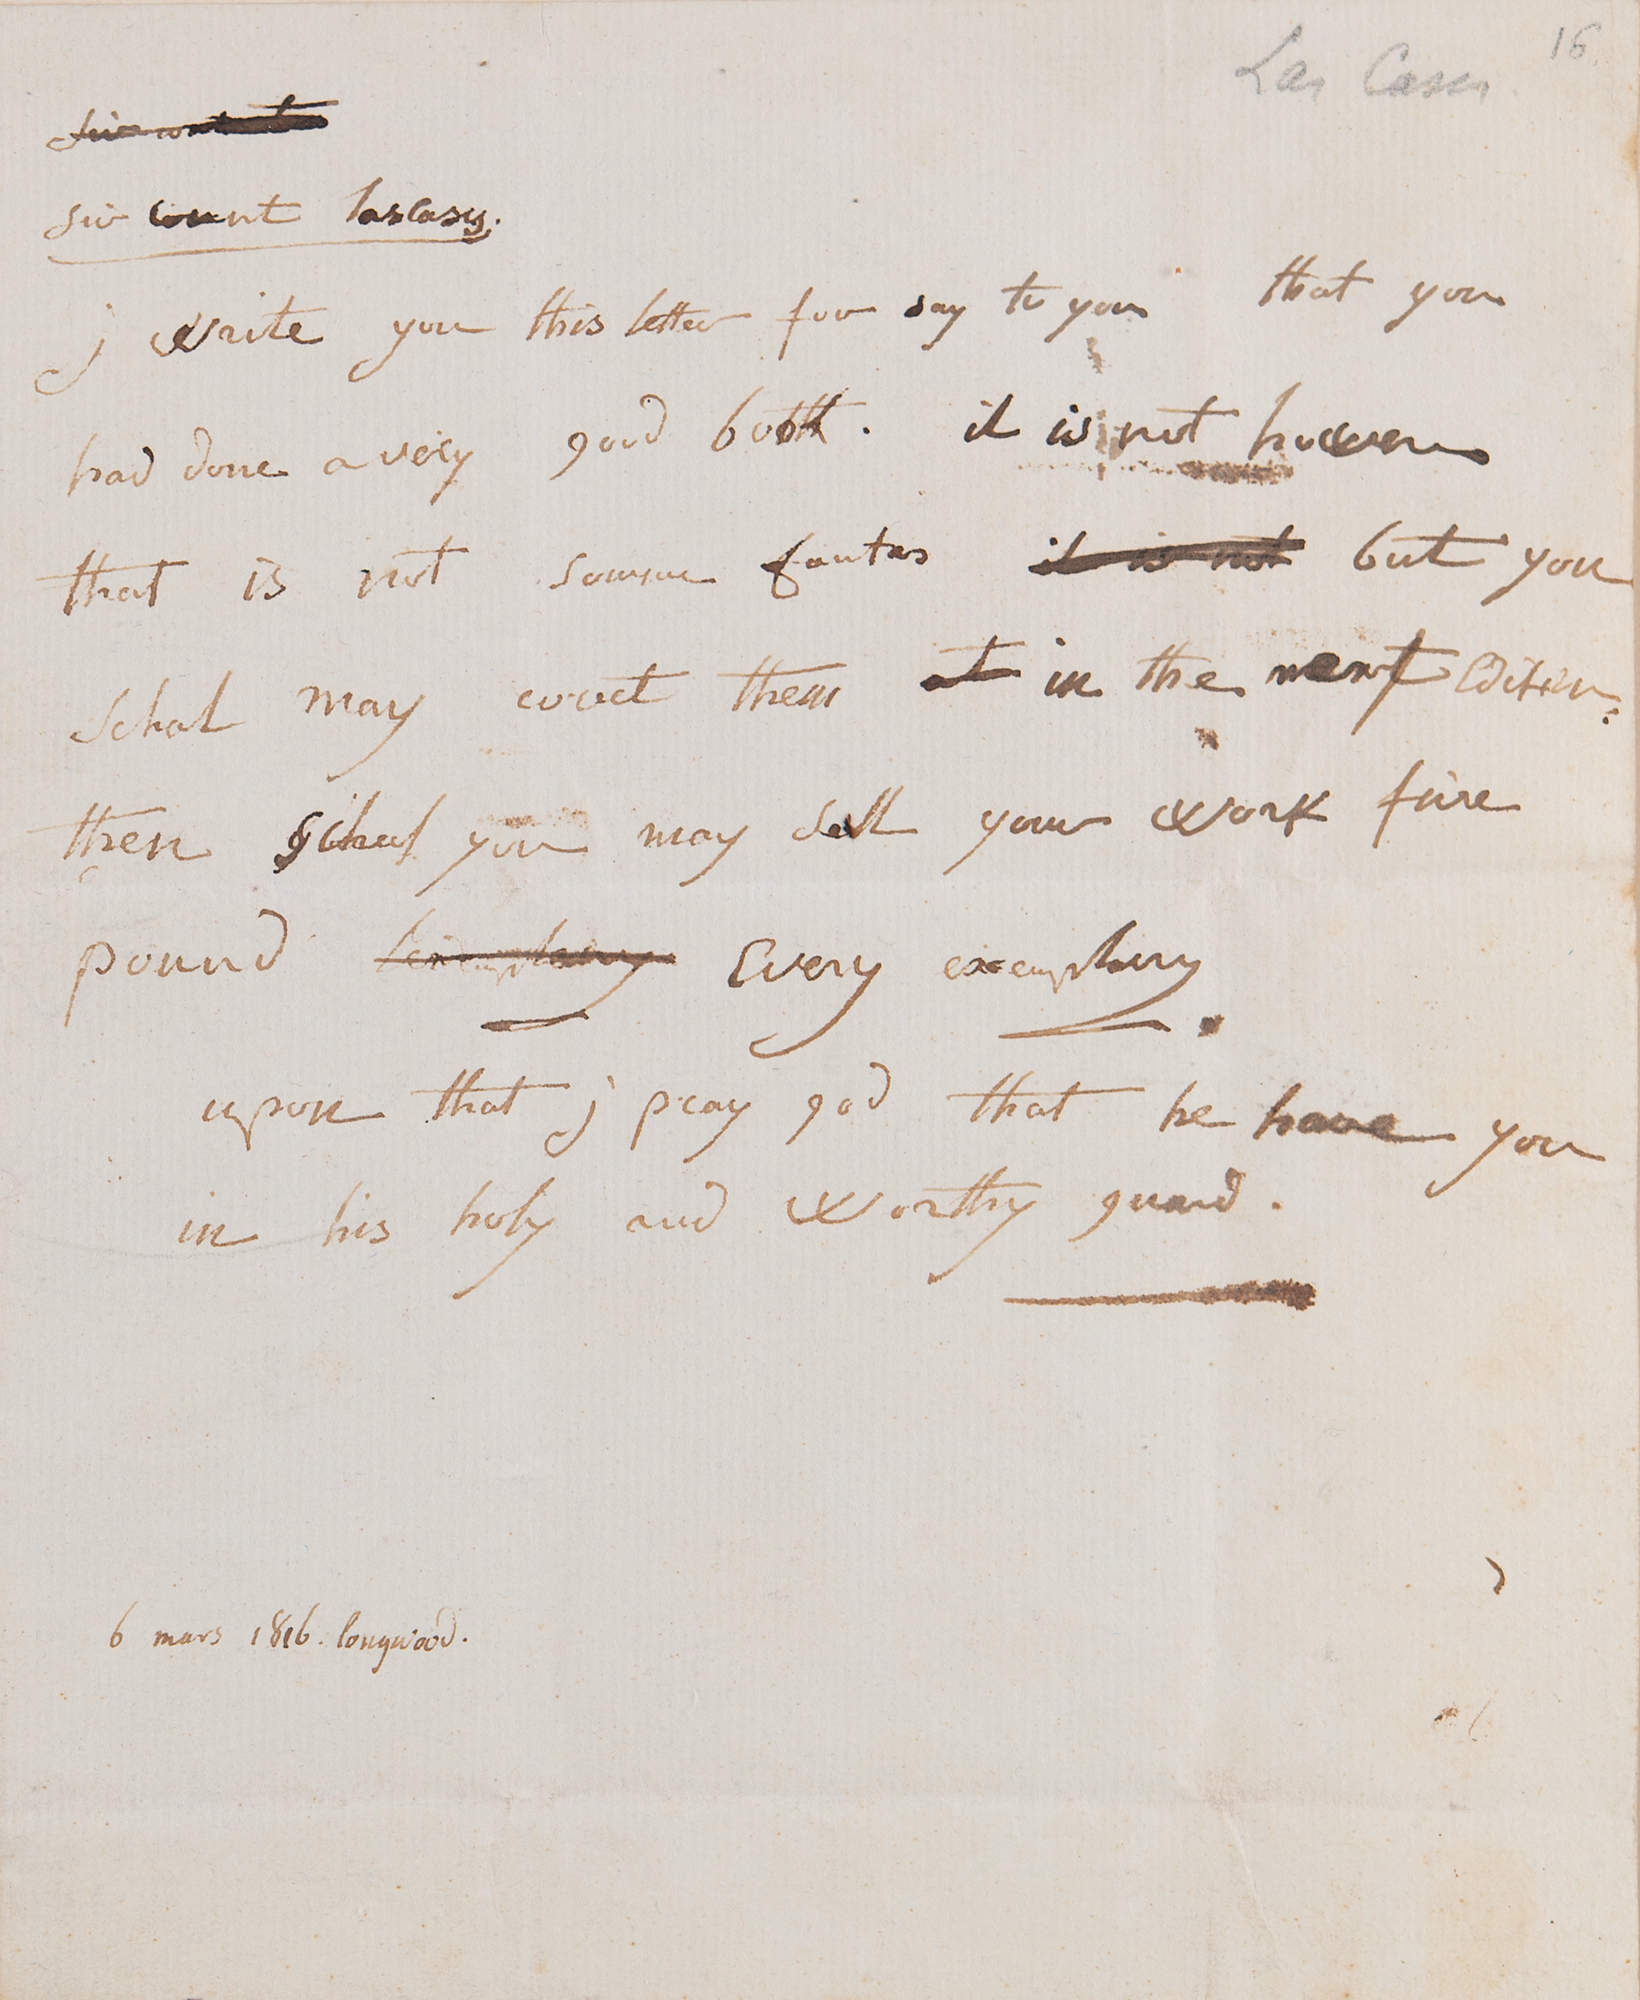 Las Cases 16
sir count lascases.
j write you this letter for say to you that you
had done a very good bottk. it is not howeven
that is not somme fautes it is not but you
schal may corect them at in the next Edition.
then schal you may sell your work five
pound l'exemplary Every exemplary.
upon that j pray god that he have you
in his holy and worthy guard.
6 mars 1816. longwood.